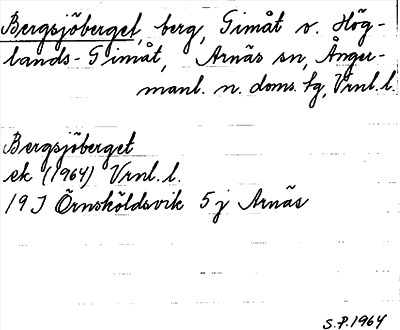 Bergsjöberget, berg, Gimåt o. Hög-
lands-Gimåt, Arnäs sn, Ånger-
manl. n. doms. tg, Vrnl. l.
Bergsjöberget
ek (1964) Vrnl. l.
19 I Örnsköldsvik 5 j Arnäs
S.P. 1964